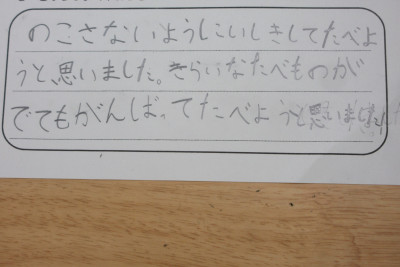 のこさないようにいしきしてたべよ
うと思いました。きらいなたべものが
でてもがんばってたべようと思いました